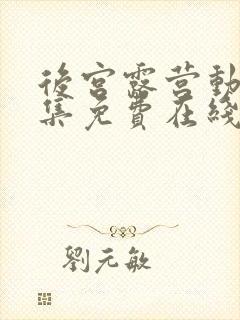 後宮露营動
集免費在綫
劉元敏